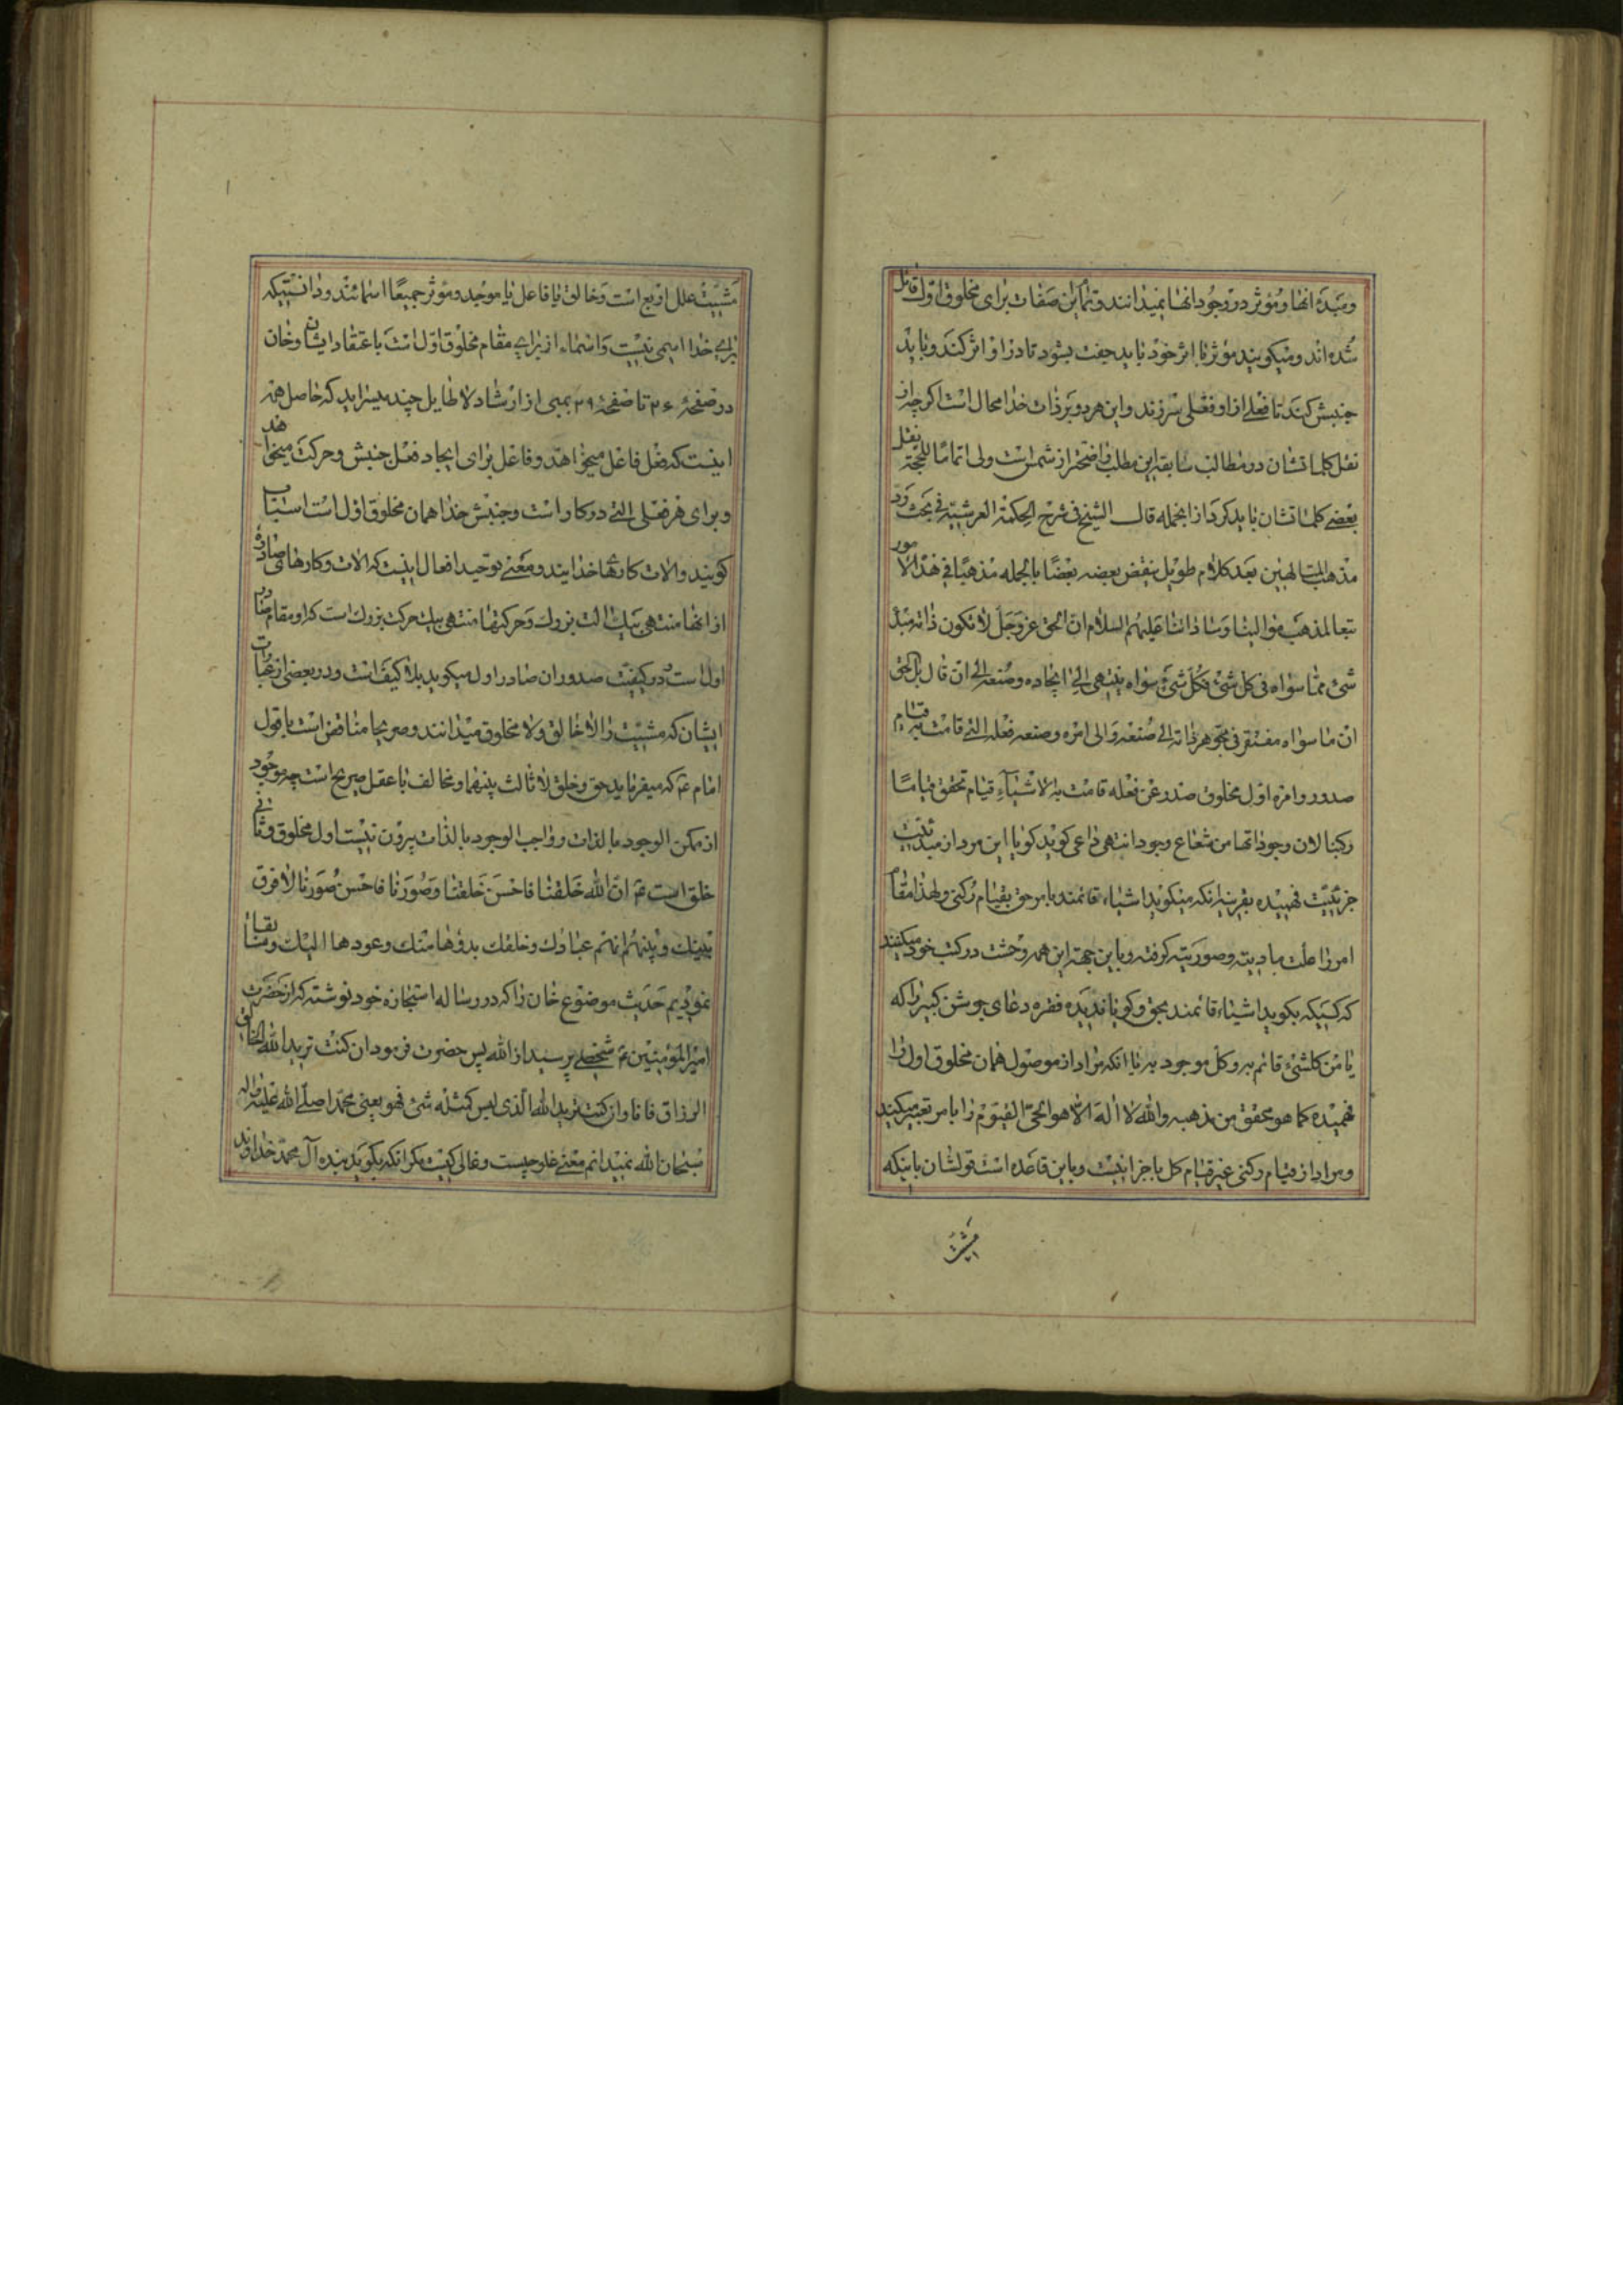 ومبدء انها و مؤثر در وجود انها نمیدانند و تمام این صفات برای مخلوق اول قائل
شده اند و میکویند مؤثر با اثر خود باید جفت بشود تا در او اثر کند و باید
جنبش کند تا فعلی از او فعلی سرزند و این هر دو بر ذات خدا محال است اکرچه از
نقل کلماتشان در مطالب سابقه این مطلب واضحتر از شمس است ولی اتماما للحجة نقل
بعضی کلماتشان باید کرد از انجمله قال الشیخ فی شرح الحکمة العرشیة فی بحث رد
مذهب المتالهین بعد کلام طویل ینقض بعضه بعضا بالجمله مذهبنا فی هذا الامور
تبعا لمذهب موالینا و ساداتنا علیهم السلام ان الحق عز وجل لا تکون ذاته مبدء
شئ مما سواه فی کل شئ فکل شئ سواه ینتهی الی ایجاده و صنعه الی ان قال بل الحق
ان ما سواه مفتقر فی تجوهر ذاته الی صنعه والی امره وصنعه فعله التی قامت به قیام
صدور وامره اول مخلوق صدر عن فعله قامت به الاشیاء قیام تحقق قیاما
رکنیا لان وجوداتها من شعاع وجوده انتهی داعی کوید کویا این مرد از مبدئیت
جزئیت فهمیده بقرینه انکه میکوید اشیاء قائمند بامر حق بقیام رکنی ولهذا مقام
امر را علت مادیته و صوریته کرفته و باین جهة این همه وحشت در کتب خود میکنند
که کسیکه بکوید اشیاء قائمند بحق و کویا ندیده فقره دعای جوشن کبیر را که
یا من کلشئ قائم به و کل موجود به یا انکه مراد از موصول همان مخلوق اول را
فهمیده کما هو محقق من مذهبه و الله لا اله الا هو الحی القیوم را بامر تعبیر میکنند
و مراد از قیام رکنی غیر قیام کل باجزا نیست و باین قاعده است قولشان باینکه
مشیت
مشیت علل اربع است و خالق یا فاعل یا موجد و مؤثر جمیعا اسمائند و دانستیکه
برای خدا اسمی نیست و اسماء از برای مقام مخلوق اول است باعتقاد ایشان و خان
در صفحهٔ ۳۶ تا صفحهٔ ۳۹ بمبی از ارشاد لاطایل چند میسراید که حاصل همه
اینست که فعل فاعل میخواهد و فاعل برای ایجاد فعل جنبش و حرکت میخواهد
و برای هر فعلی التی در کار است و جنبش خدا همان مخلوق اول است اسباب
کویند و الات کارهای خدایند و معنی توحید افعال اینست که الات و کارها صادره
از انها منتهی بیک الت بزرک و حرکتها منتهی بیک حرکت بزرک است که او مقام صادر
اول است و در کیفیت صدور ان صادر اول میکوید بلا کیف است و در بعضی از عبارات
ایشان که مشیت را لا خالق و لا مخلوق میدانند و صریحا مناقض است با قول
امام ع که میفرماید حق و خلق لا ثالث بینهما و مخالف با عقل صریح است چه موجود
از ممکن الوجود بالذات و واجب الوجود بالذات بیرون نیست اول مخلوق و ثانی
خلق است ع ان الله خلقنا فاحسن خلقنا وصورنا فاحسن صورنا لا فرق
بینک و بینهم انهم عبادک وخلقک بدؤها منک وعودها الیک و سابقا
نمودیم حدیث موضوع خان را که در رساله استجازه خود نوشته که از حضرت
امیر المؤمنین ع شخصی پرسید از الله پس حضرت فرمود ان کنت ترید الله الخالق
الرزاق فانا و ان کنت ترید الله الذی لیس کمثله شئ فهو یعنی محمد صلی الله علیه و اله
سبحان الله نمیدانم معنی غلو چیست و غالی کیست مکر انکه بکوید بنده آل محمد خداوند